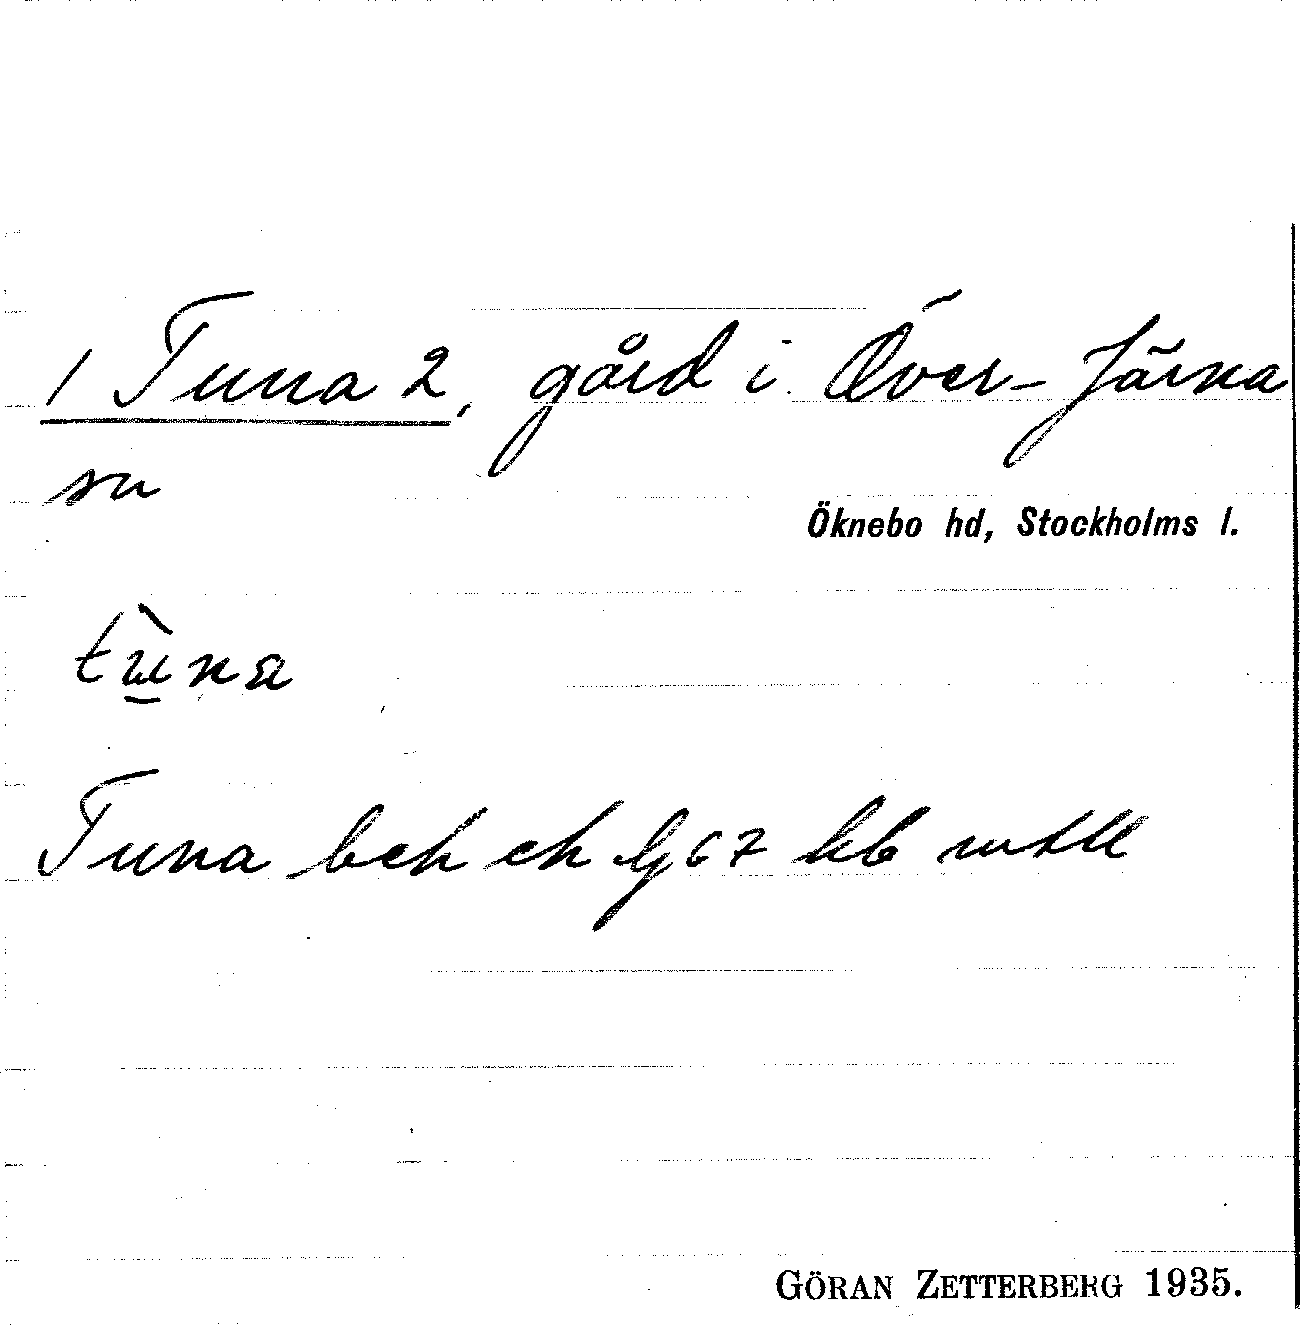 1 Tuna 2, gård i Över-Järna
sn
Öknebo hd, Stockholms l.
tùna
Tuna beh ek lg 67 hb mtll
GÖRAN ZETTERBERG 1935.